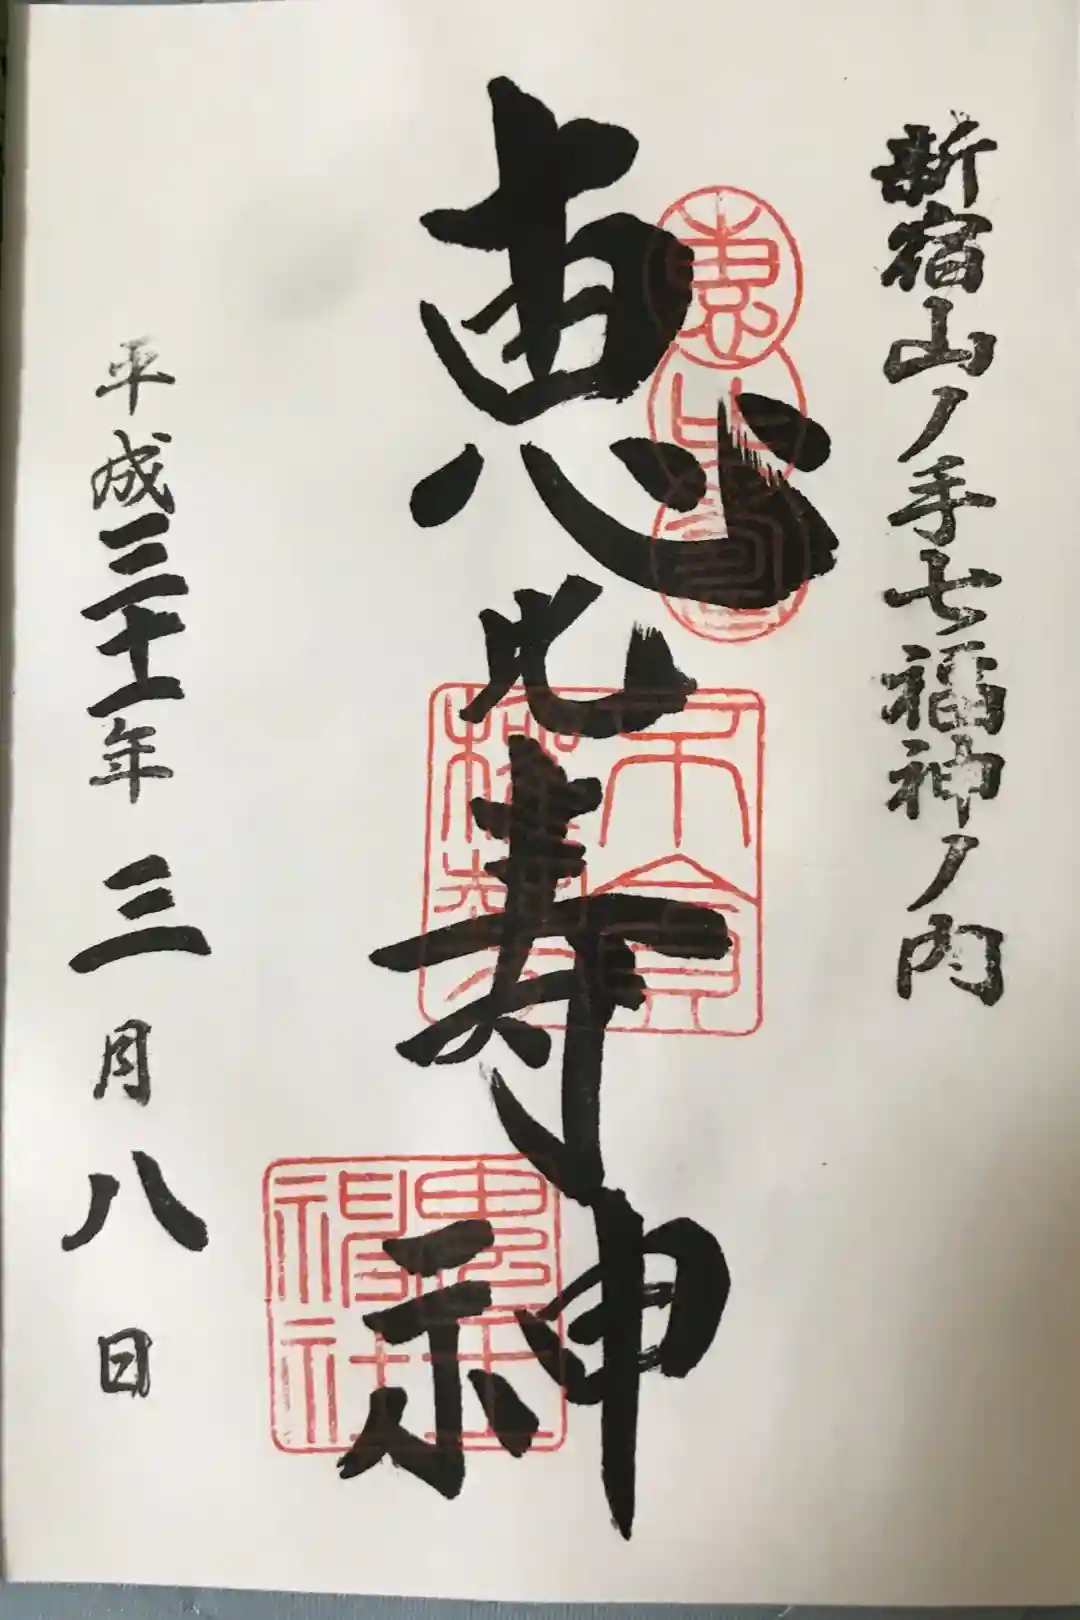 新宿山ノ手七福神ノ内
恵比寿神
恵比寿
平成三十一年三月八日